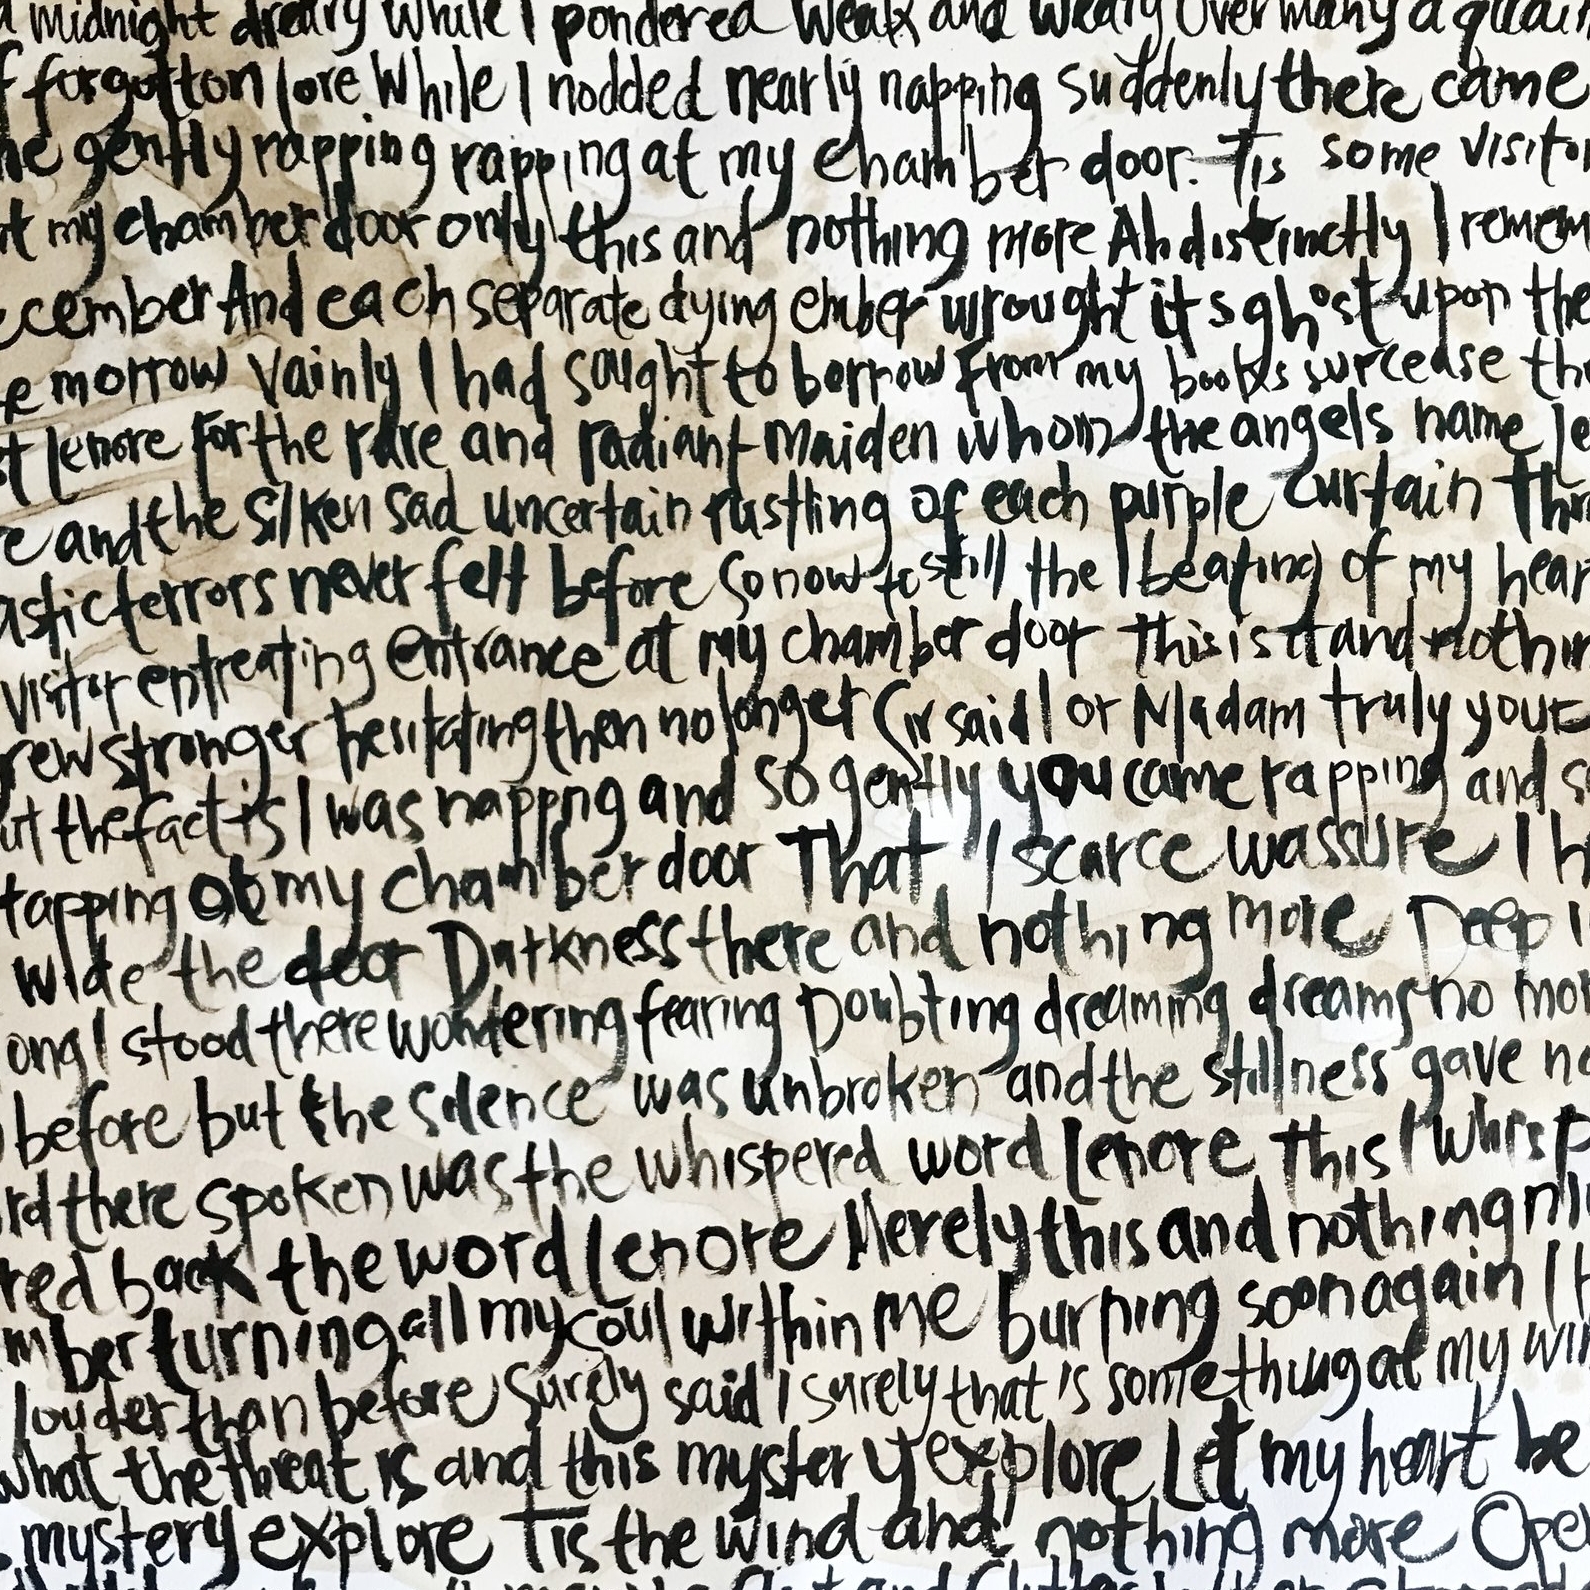 midnight dreary while I pondered weak and weary over many a quain
f forgotton lore While I nodded nearly napping suddenly there came
he gently rapping rapping at my chamber door. Tis some visitor
at my chamber door only this and nothing more Ah distinctly I remem
ecember And each separate dying ember wrought its ghost upon the
e morrow Vainly I had sought to borrow from my books surcease thr
st lenore For the rare and radiant Maiden whom the angels name le
e and the silken sad uncertain rustling of each purple curtain Thri
astic terrors never felt before So now to still the beating of my hear
visitor entreating entrance at my chamber door This is it and nothin
rew stronger hesitating then no longer Sir said I or Madam truly your
ut the fact is I was nappng and so gently you came rapping and so
tapping at my chamber door That I scarce was sure I h
wide the door Darkness there and nothing more Deep i
ong I stood there wondering fearing Doubting dreaming dreams no mor
before but the silence was unbroken and the stillness gave no
rd there spoken was the whispered word Lenore This I whisp
red back the word Lenore Merely this and nothing m
mber turning all my soul within me burning soon again I h
louder than before Surely said I surely that is something at my win
what the threat is and this mystery explore Let my heart be
mystery explore Tis the wind and nothing more Open